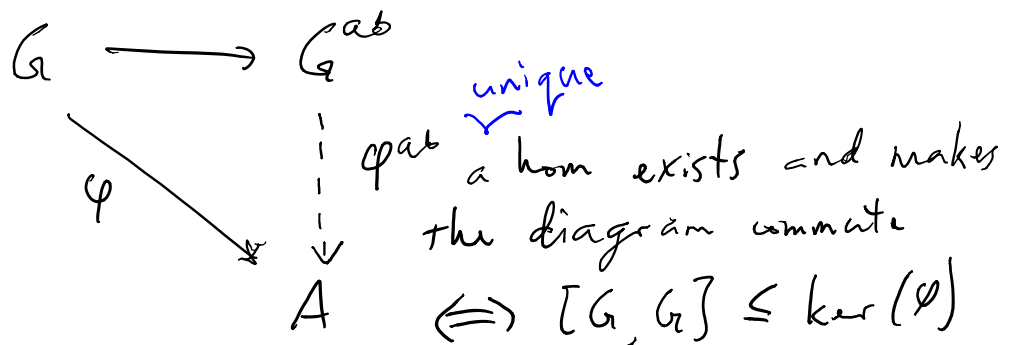 G → G^ab
unique
φ φ^ab a hom exists and makes
the diagram commute
A ⟺ [G, G] ≤ ker(φ)